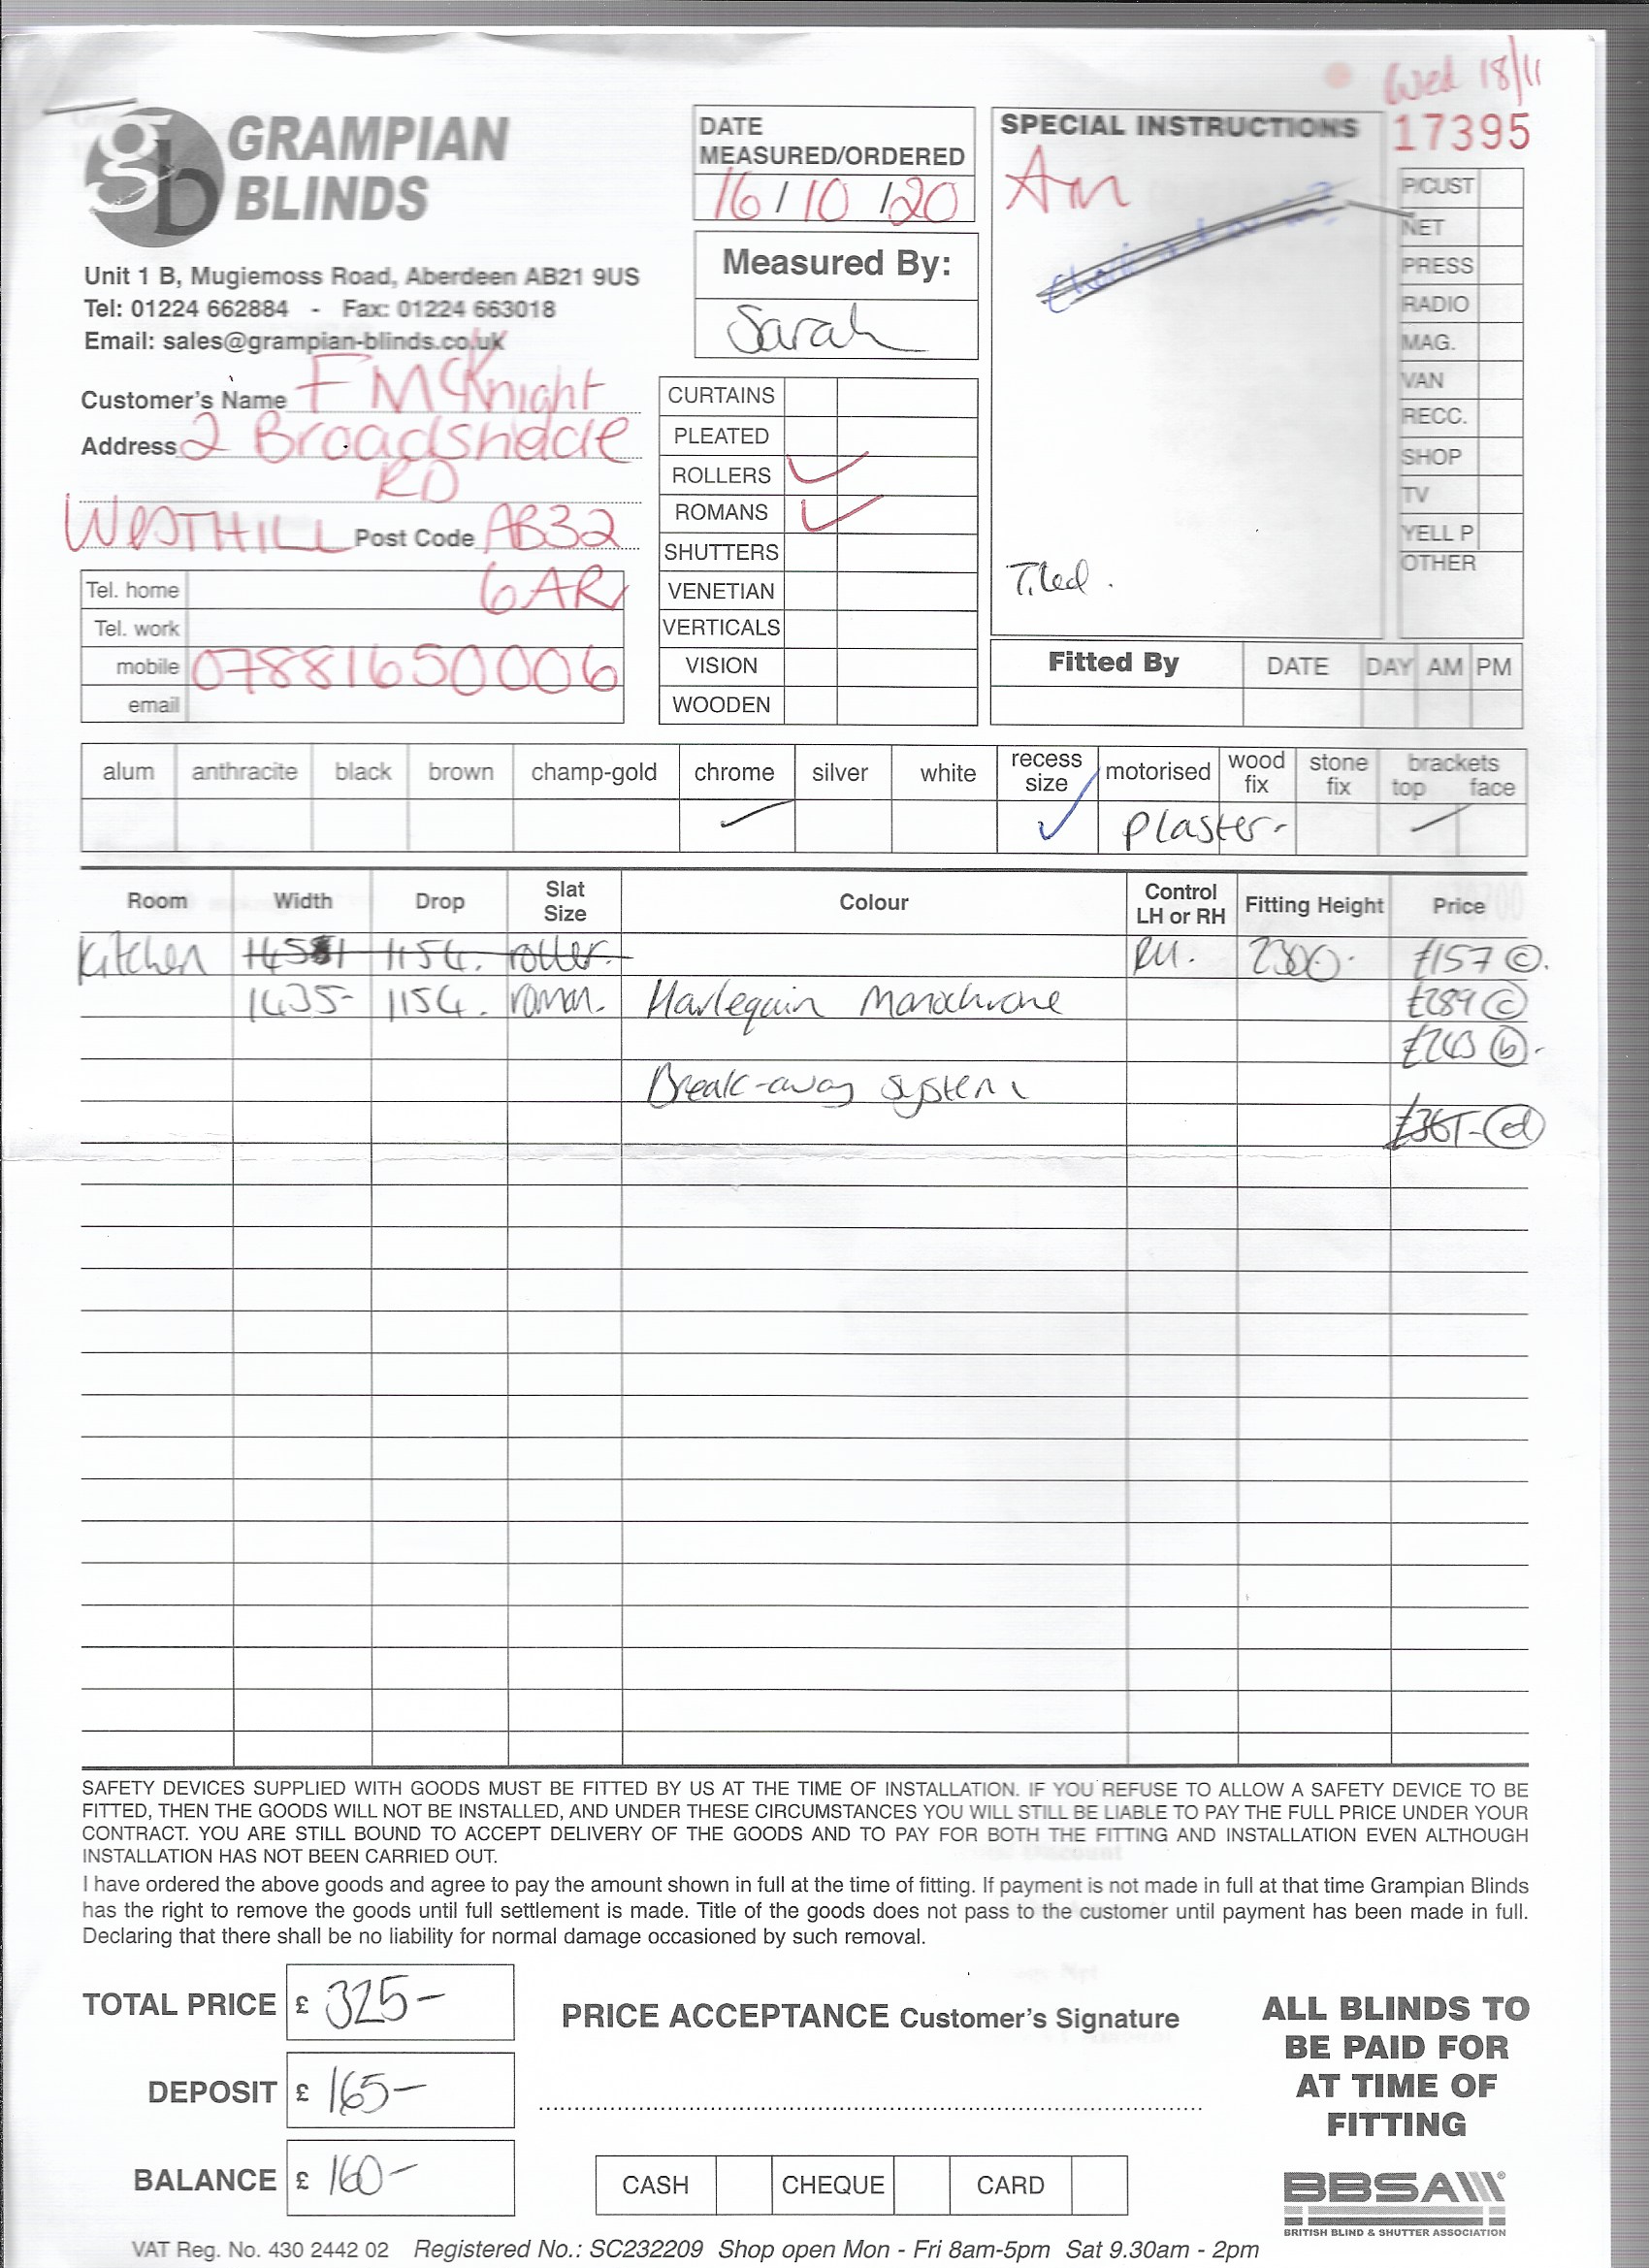 Wed 18/11
GRAMPIAN
BLINDS
Unit 1 B, Mugiemoss Road, Aberdeen AB21 9US
Tel: 01224 662884 - Fax: 01224 663018
Email: sales@grampian-blinds.co.uk
DATE
MEASURED/ORDERED
16/10/20
Measured By:
Sarah
SPECIAL INSTRUCTIONS
17395
Am
Tiled.
P/CUST
NET
PRESS
RADIO
MAG.
VAN
RECC.
SHOP
TV
YELL P
OTHER
Customer's Name F McKnight
Address 2 Broadshade
RD
WESTHILL Post Code AB32
6AR
Tel. home
Tel. work
mobile 07881650006
email
CURTAINS
PLEATED
ROLLERS ✓
ROMANS ✓
SHUTTERS
VENETIAN
VERTICALS
VISION
WOODEN
Fitted By DATE DAY AM PM
alum anthracite black brown champ-gold chrome silver white recess size motorised wood fix stone fix brackets top face
✓ ✓ plaster-
Room Width Drop Slat Size Colour Control LH or RH Fitting Height Price
Kitchen 1154. roller. RH. 2300. £157 ©.
1435- 1154. roman. Harlequin Monochrome £289 ©
£243 (b).
Break-away system
(d)
SAFETY DEVICES SUPPLIED WITH GOODS MUST BE FITTED BY US AT THE TIME OF INSTALLATION. IF YOU REFUSE TO ALLOW A SAFETY DEVICE TO BE
FITTED, THEN THE GOODS WILL NOT BE INSTALLED, AND UNDER THESE CIRCUMSTANCES YOU WILL STILL BE LIABLE TO PAY THE FULL PRICE UNDER YOUR
CONTRACT. YOU ARE STILL BOUND TO ACCEPT DELIVERY OF THE GOODS AND TO PAY FOR BOTH THE FITTING AND INSTALLATION EVEN ALTHOUGH
INSTALLATION HAS NOT BEEN CARRIED OUT.
I have ordered the above goods and agree to pay the amount shown in full at the time of fitting. If payment is not made in full at that time Grampian Blinds
has the right to remove the goods until full settlement is made. Title of the goods does not pass to the customer until payment has been made in full.
Declaring that there shall be no liability for normal damage occasioned by such removal.
TOTAL PRICE £ 325-
DEPOSIT £ 165-
BALANCE £ 160-
PRICE ACCEPTANCE Customer's Signature
CASH CHEQUE CARD
ALL BLINDS TO
BE PAID FOR
AT TIME OF
FITTING
BBSA
BRITISH BLIND & SHUTTER ASSOCIATION
VAT Reg. No. 430 2442 02 Registered No.: SC232209 Shop open Mon - Fri 8am-5pm Sat 9.30am - 2pm